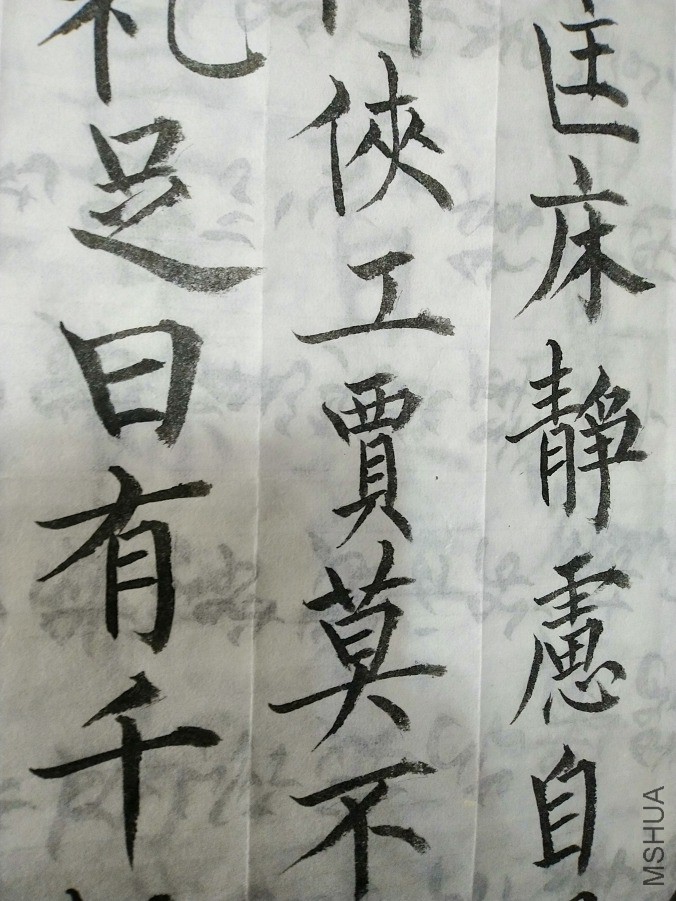 匡床靜慮自
俠工賈莫不
礼足日有千
MSHUA